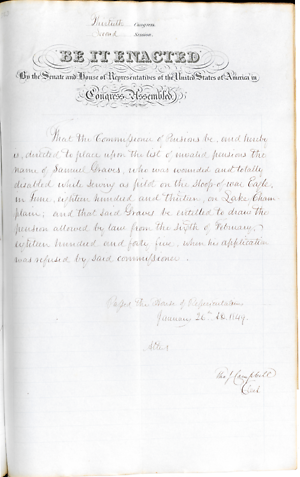 Thirtieth Congress
Second Session
BE IT ENACTED
By the Senate and House of Representatives of the United States of America in
Congress Assembled,
That the Commissioner of Pensions be, and hereby
is, directed to place upon the list of invalid pensions the
name of Samuel Graves, who was wounded and totally
disabled while serving as on the sloop of war Eagle,
in June, eighteen hundred and thirteen, on Lake Cham
plain; and that said Graves be entitled to draw the
pension allowed by law from the sixth of February,
eighteen hundred and forty five, when his application
was refused by said commissioner.
Passed the House of Representatives
January 26th 1849.
Attest
Tho J Campbell
Clerk